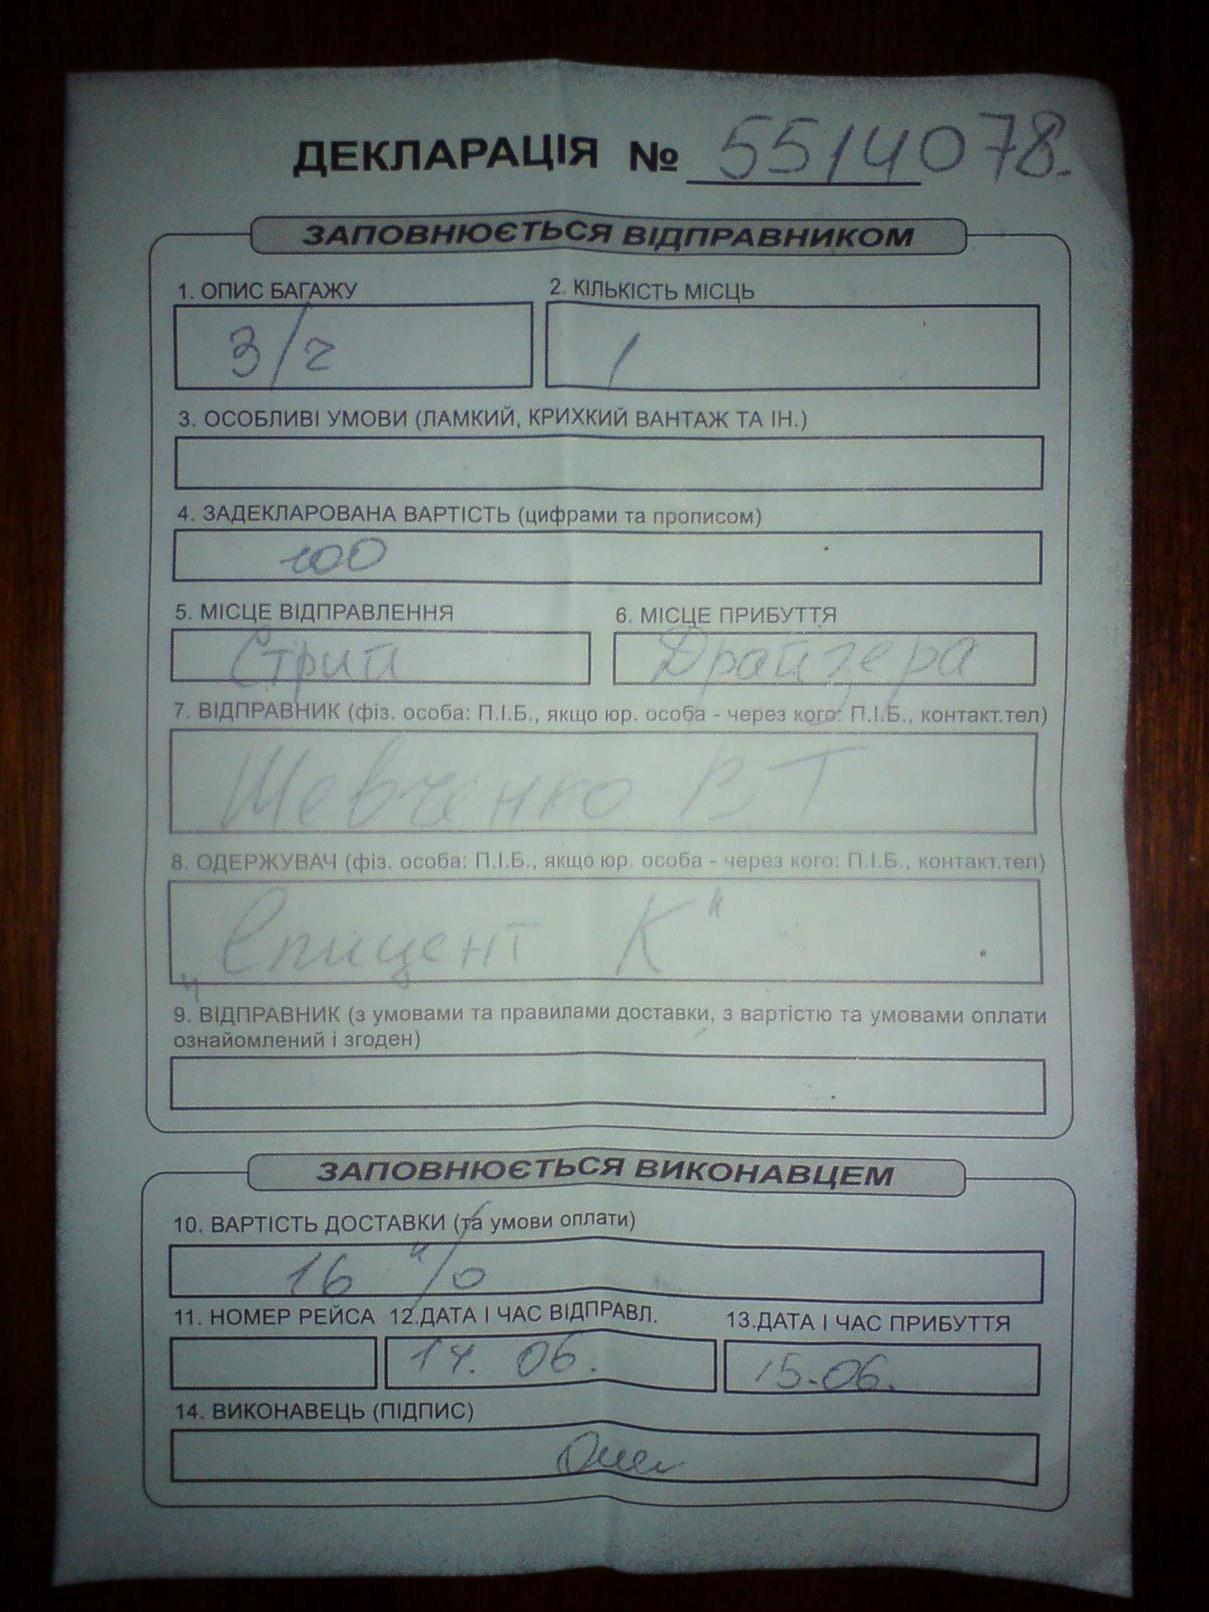 ДЕКЛАРАЦІЯ № 5514078.
ЗАПОВНЮЄТЬСЯ ВІДПРАВНИКОМ
1. ОПИС БАГАЖУ 2. КІЛЬКІСТЬ МІСЦЬ
З/ч 1
3. ОСОБЛИВІ УМОВИ (ЛАМКИЙ, КРИХКИЙ ВАНТАЖ ТА ІН.)
4. ЗАДЕКЛАРОВАНА ВАРТІСТЬ (цифрами та прописом)
100
5. МІСЦЕ ВІДПРАВЛЕННЯ 6. МІСЦЕ ПРИБУТТЯ
Стрий Драйзера
7. ВІДПРАВНИК (фіз. особа: П.І.Б., якщо юр. особа - через кого: П.І.Б., контакт.тел)
Шевченко В Т
8. ОДЕРЖУВАЧ (фіз. особа: П.І.Б., якщо юр. особа - через кого: П.І.Б., контакт.тел)
„Епицент К"
9. ВІДПРАВНИК (з умовами та правилами доставки, з вартістю та умовами оплати
ознайомлений і згоден)
ЗАПОВНЮЄТЬСЯ ВИКОНАВЦЕМ
10. ВАРТІСТЬ ДОСТАВКИ (та умови оплати)
16 н/о
11. НОМЕР РЕЙСА 12.ДАТА І ЧАС ВІДПРАВЛ. 13.ДАТА І ЧАС ПРИБУТТЯ
14. 06. 15.06.
14. ВИКОНАВЕЦЬ (ПІДПИС)